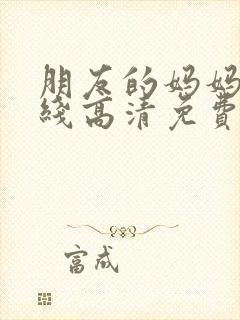 朋友的妈妈
线高清免費
富成